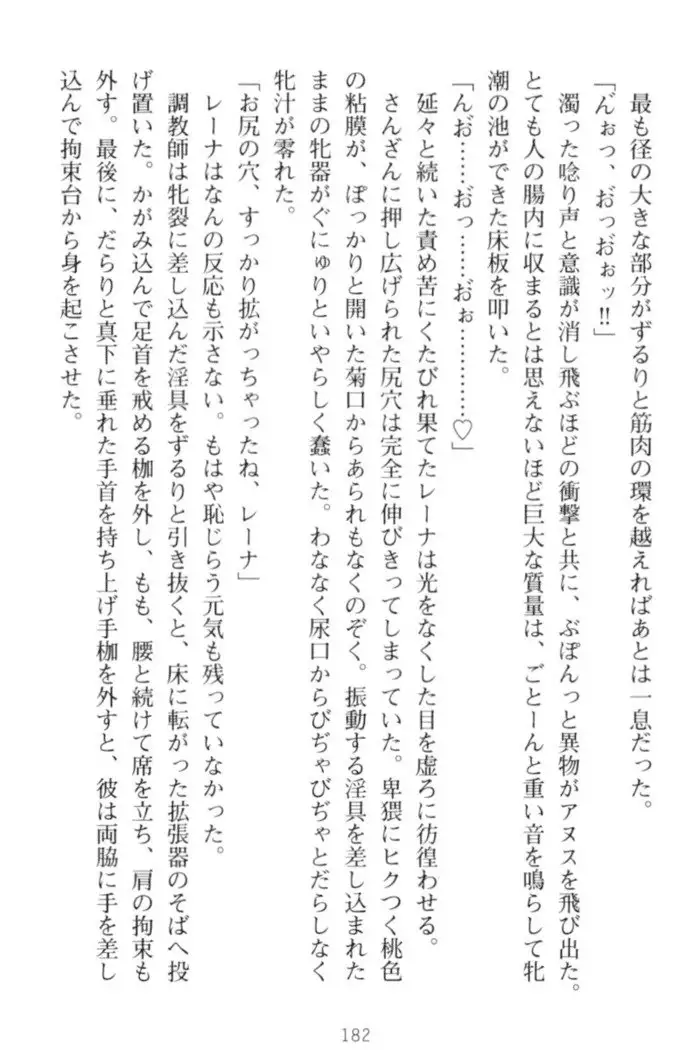 最も径の大きな部分がずるりと筋肉の環を越えればあとは一息だった。
「ん゛ぉっ、お゛っお゛ぉッ‼」
濁った唸り声と意識が消し飛ぶほどの衝撃と共に、ぶぽんっと異物がアヌスを飛び出た。
とても人の腸内に収まるとは思えないほど巨大な質量は、ごとーんと重い音を鳴らして牝
潮の池ができた床板を叩いた。
「んお゛……お゛っ……お゛ぉ…………♡」
延々と続いた責め苦にくたびれ果てたレーナは光をなくした目を虚ろに彷徨わせる。
さんざんに押し広げられた尻穴は完全に伸びきってしまっていた。卑猥にヒクつく桃色
の粘膜が、ぽっかりと開いた菊口からあられもなくのぞく。振動する淫具を差し込まれた
ままの牝器がぐにゅりといやらしく蠢いた。わななく尿口からびぢゃびぢゃとだらしなく
牝汁が零れた。
「お尻の穴、すっかり拡がっちゃったね、レーナ」
レーナはなんの反応も示さない。もはや恥じらう元気も残っていなかった。
調教師は牝裂に差し込んだ淫具をずるりと引き抜くと、床に転がった拡張器のそばへ投
げ置いた。かがみ込んで足首を戒める枷を外し、もも、腰と続けて席を立ち、肩の拘束も
外す。最後に、だらりと真下に垂れた手首を持ち上げ手枷を外すと、彼は両脇に手を差し
込んで拘束台から身を起こさせた。
182